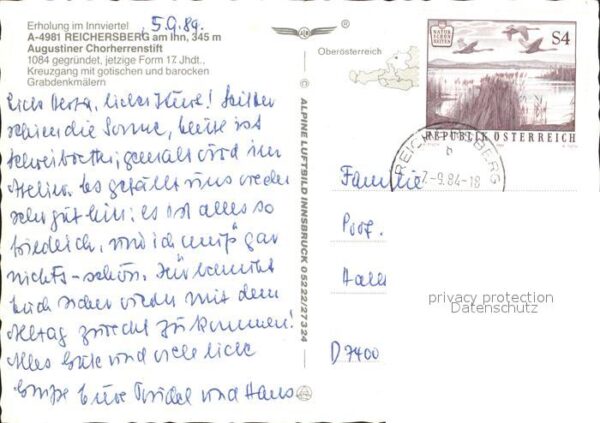 Erholung im Innviertel
5.9.84.
A-4981 REICHERSBERG am Inn, 345 m
Augustiner Chorherrenstift
1084 gegründet, jetzige Form 17. Jhdt.,
Kreuzgang mit gotischen und barocken
Grabdenkmälern
Liebe Herta, lieber! Seither
schien die Sonne, heute ist
gemalt wird im
Atelier. Es gefällt uns wieder
sehr gut hier; es ist alles so
friedlich, und ich muß gar
nichts - schön. Ihr bemüht
Euch sicher wieder mit dem
Alltag zurecht zu kommen!
Alles Gute und viele liebe
Grüße Eure und Hans.
®
Oberösterreich
ALPINE LUFTBILD INNSBRUCK 05222/27324
NATUR
SCHÖN
HEITEN
S4
REPUBLIK ÖSTERREICH
REICHERSBERG
b
-9.84-18
Familie
Prof.
Haller
D 7400
privacy protection
Datenschutz